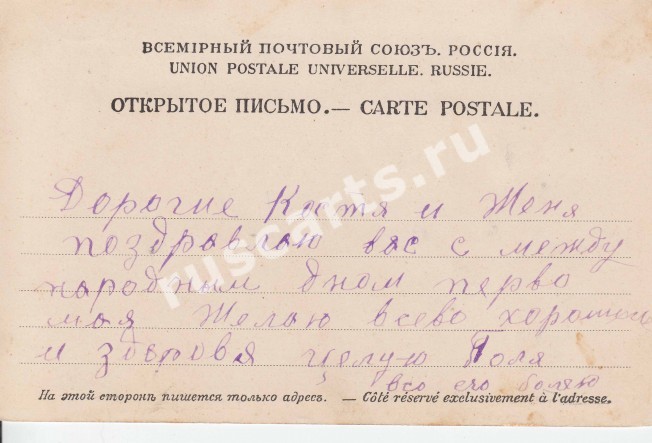 ВСЕМІРНЫЙ ПОЧТОВЫЙ СОЮЗЪ. РОССІЯ.
UNION POSTALE UNIVERSELLE. RUSSIE.
ОТКРЫТОЕ ПИСЬМО.— CARTE POSTALE.
Дорогие Костя и Женя
поздравлаю вас с между
народным дном перво
мая Желаю всево хорошого
и здоровя целую Поля
На этой сторонѣ пишется только адресъ. — Côté réservé exclusivement à l'adresse.
ruscarts.ru